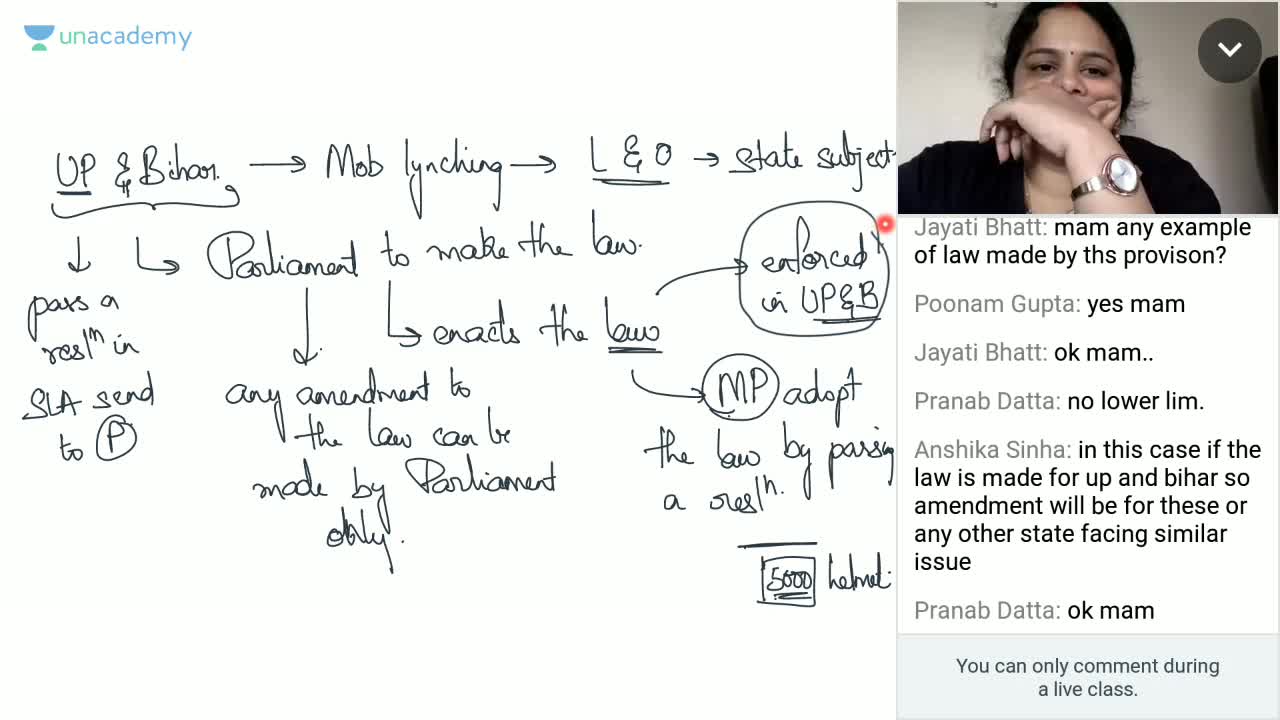 unacademy
UP & Bihar. → Mob lynching → L & O → State subject
Parliament to make the law.
pass a
resl^n in
SLA send
to P
enacts the law
enforced
in UP&B
any amendment to
the law can be
made by Parliament
only.
MP adopt
the law by passing
a resl^n.
5000 helmet.
Jayati Bhatt: mam any example
of law made by ths provison?
Poonam Gupta: yes mam
Jayati Bhatt: ok mam..
Pranab Datta: no lower lim.
Anshika Sinha: in this case if the
law is made for up and bihar so
amendment will be for these or
any other state facing similar
issue
Pranab Datta: ok mam
You can only comment during
a live class.